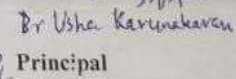 Br Usha Karunakaran
Principal